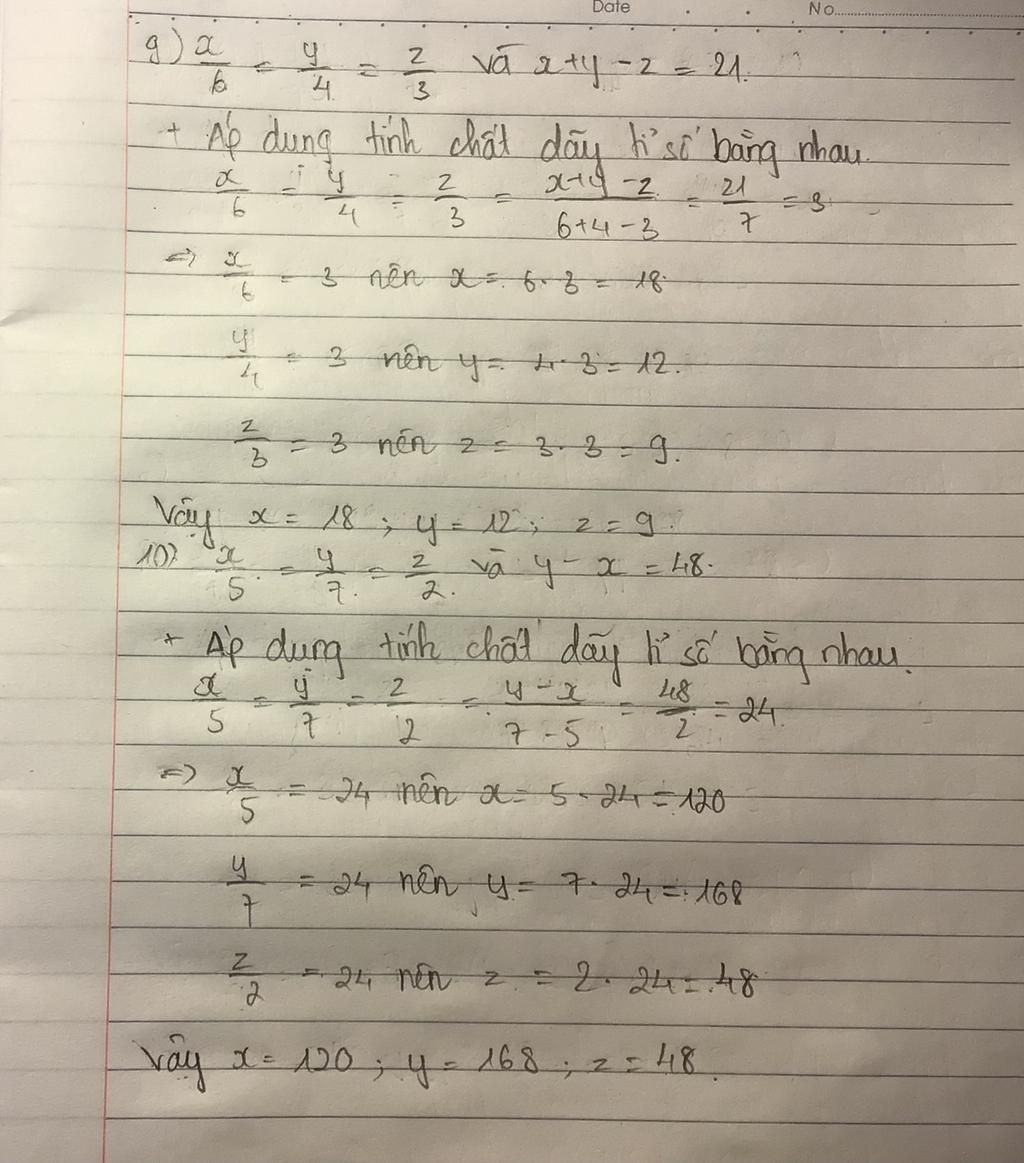 Date . . No
9) x/6 = y/4 = z/3 và x+y-z = 21.
+ Áp dụng tính chất dãy tỉ số bằng nhau.
x/6 = y/4 = z/3 = (x+y-z)/(6+4-3) = 21/7 = 3
=> x/6 = 3 nên x = 6.3 = 18
y/4 = 3 nên y = 4.3 = 12.
z/3 = 3 nên z = 3.3 = 9.
Vậy x = 18 ; y = 12 ; z = 9.
10) x/5 = y/7 = z/2 và y - x = 48.
+ Áp dụng tính chất dãy tỉ số bằng nhau.
x/5 = y/7 = z/2 = (y-x)/(7-5) = 48/2 = 24.
=> x/5 = 24 nên x = 5.24 = 120
y/7 = 24 nên y = 7.24 = 168
z/2 = 24 nên z = 2.24 = 48
Vậy x = 120 ; y = 168 ; z = 48.